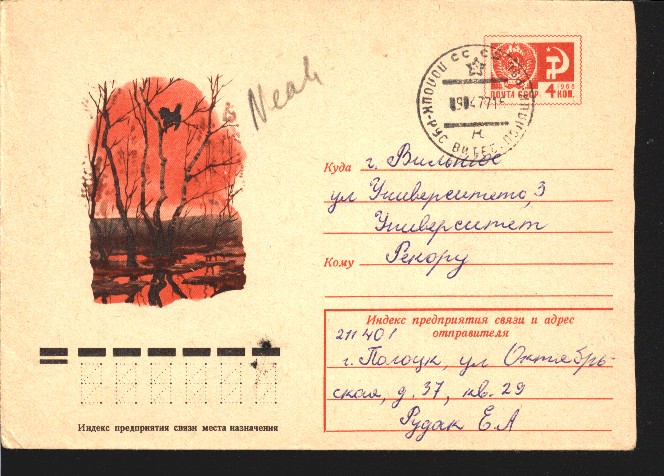 Neah
ПОЧТА СССР 4 КОП.
1966
Куда г. Вильнюс
ул Университето, 3
Университет
Кому Рекору
Индекс предприятия связи и адрес
отправителя
211401
г. Полоцк, ул Октябрь-
ская, д. 37, кв. 29
Рудак Е.А
Индекс предприятия связи места назначения